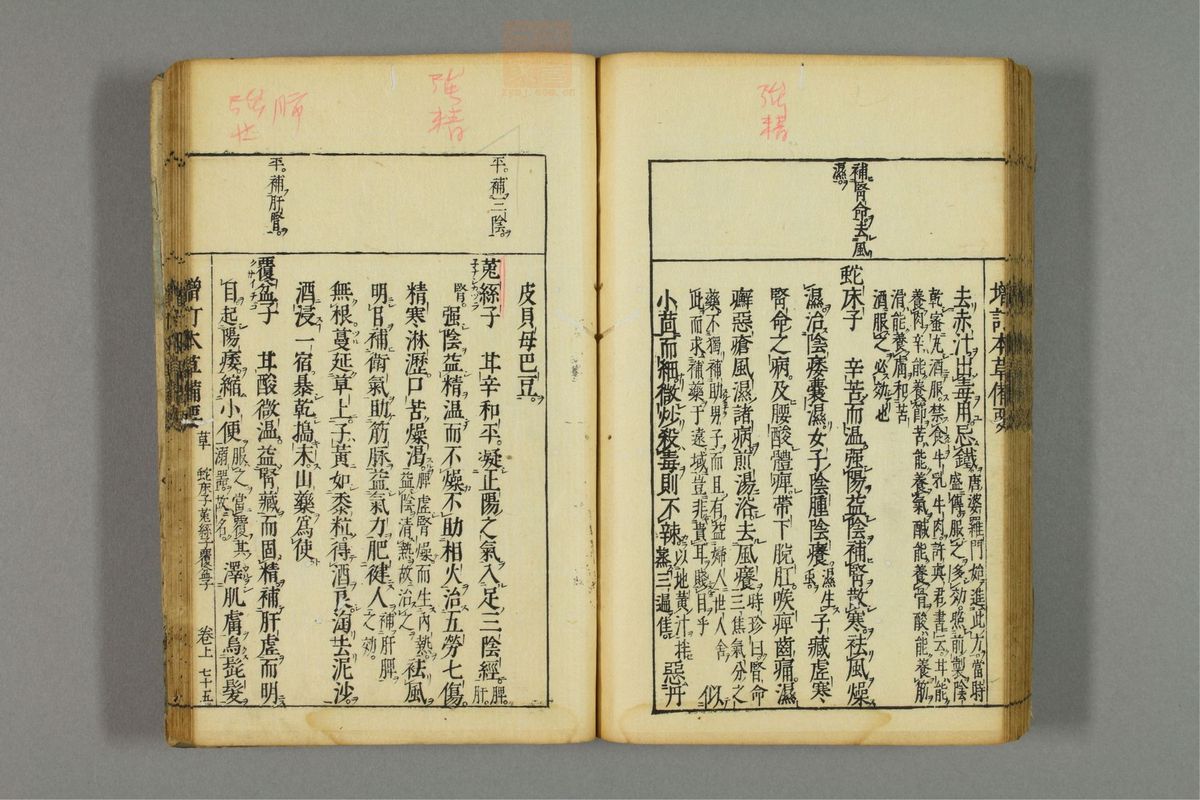 強
精
補腎命去風
濕
增訂本草備要
去赤汁出毒用忌鐵唐婆羅門始進此方當時盛傳服之多効照前製陰
乾蜜丸酒服禁食牛乳牛肉許真君書云甘能
養肉辛能養節苦能養氣鹹能養骨酸能養筋
滑能養膚和苦
酒服之必効也
蛇床子 辛苦而温强陽益陰補腎散寒袪風燥
濕治陰痿囊濕女子陰腫陰癢濕生蟲子藏虗寒
腎命之病及腰酸體痺帶下脫肛喉痺齒痛濕
癬惡瘡風濕諸病煎湯浴去風癢時珍曰腎命三焦氣分之
藥不獨補助男子而且有益婦人世人舍
此而求補藥于遠域豈非貴耳賤目乎 似
小茴而細微炒殺毒則不辣以地黃汁拌蒸三遍佳惡丹
強
精
肺
強
壮
平補三陰
平補肝腎
皮貝母巴豆
菟絲子 甘辛和平凝正陽之氣入足三陰經脾肝
腎强陰益精温而不燥不助相火治五勞七傷
精寒淋瀝口苦燥渴脾虗腎燥而生內熱益陰清熱故治之袪風
明目補衛氣助筋脉益氣力肥健人補肝脾之効
無根蔓延草上子黃如黍粒得酒良淘去泥沙
酒浸一宿暴乾搗末山藥爲使
覆盆子 甘酸微温益腎藏而固精補肝虗而明
目起陽痿縮小便服之當覆其溺器故名澤肌膚烏髭髮
增訂本草備要 草 蛇床子菟絲子覆盆子 卷上 七十五